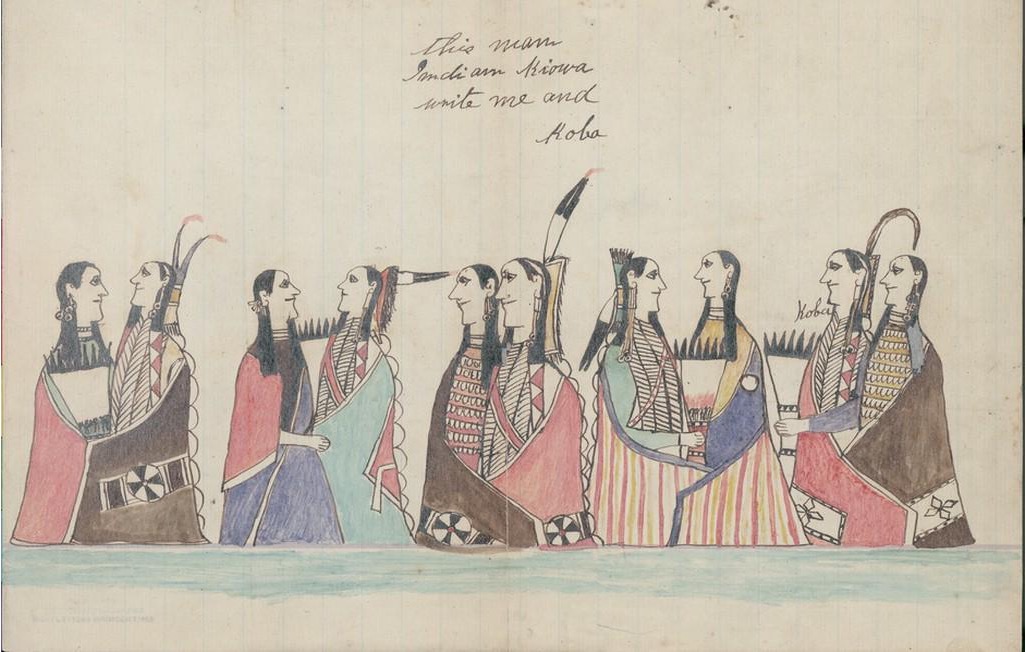 This man
Indian Kiowa
write me and
Koba
Koba